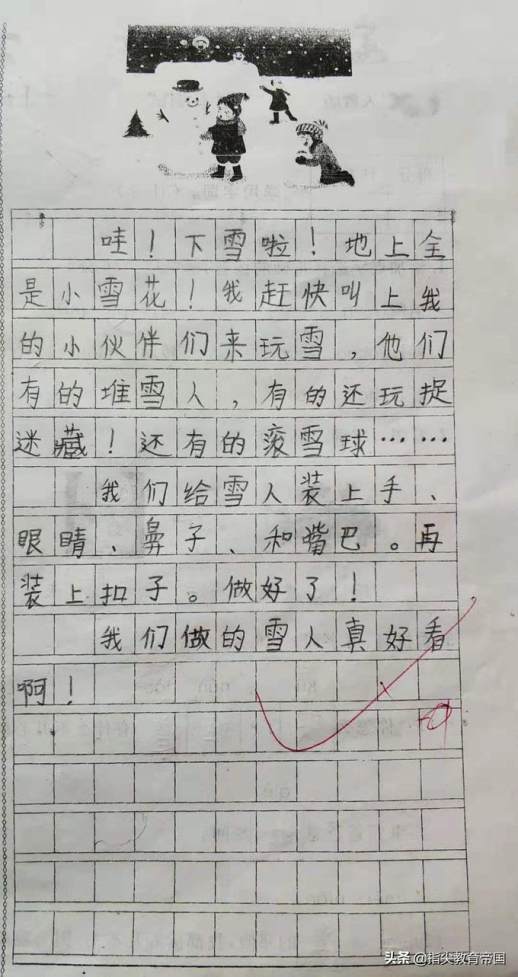 哇！下雪啦！地上全
是小雪花！我赶快叫上我
的小伙伴们来玩雪，他们
有的堆雪人，有的还玩捉
迷藏！还有的滚雪球……
我们给雪人装上手、
眼睛、鼻子、和嘴巴。再
装上扣子。做好了！
我们做的雪人真好看
啊！
头条@指尖教育帝国